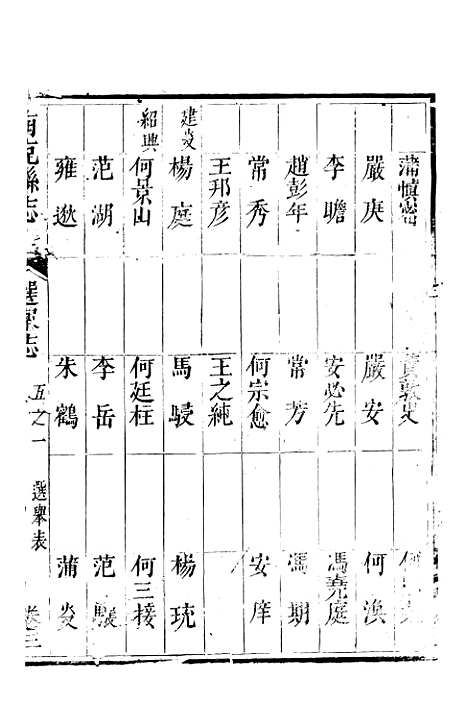 蒲慎密 黃敦史
嚴庚 嚴安 何渙
李瞻 安必先 馮堯庭
趙彭年 常芳 馮期
常秀 何宗愈 安庠
王邦彥 王之純
建炎 楊庭 馬駸 楊珫
紹興 何景山 何廷枉 何三接
范湖 李岳 范騤
雍逖 朱鶴 蒲炎
南充縣志 選舉志 五之一 選舉表 卷三